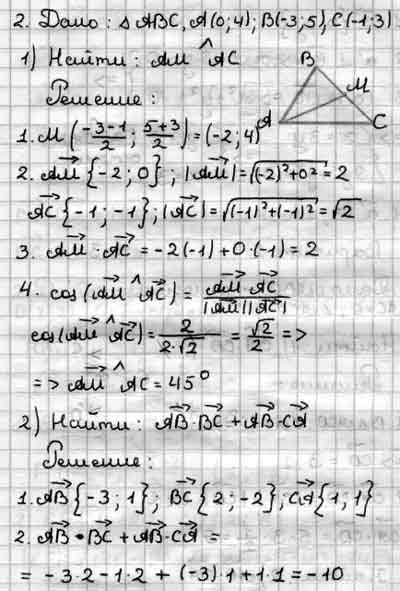 2. Дано: △ ABC, A(0;4); B(-3;5), C(-1;3)
1) Найти: AM ^ AC
B
M
A
C
Решение:
1. M (\frac{-3-1}{2}; \frac{5+3}{2}) = (-2; 4)
2. \vec{AM} {-2; 0}; |\vec{AM}| = \sqrt{(-2)^2+0^2} = 2
\vec{AC} {-1; -1}; |\vec{AC}| = \sqrt{(-1)^2+(-1)^2} = \sqrt{2}
3. \vec{AM} · \vec{AC} = -2(-1) + 0·(-1) = 2
4. cos(\vec{AM} ^ \vec{AC}) = \frac{\vec{AM} · \vec{AC}}{|\vec{AM}| |\vec{AC}|}
cos(\vec{AM} ^ \vec{AC}) = \frac{2}{2·\sqrt{2}} = \frac{\sqrt{2}}{2} =>
=> \vec{AM} ^ AC = 45°
2) Найти: \vec{AB} · \vec{BC} + \vec{AB} · \vec{CA}
Решение:
1. \vec{AB} {-3; 1}; \vec{BC} {2; -2}; \vec{CA} {1; 1}
2. \vec{AB} • \vec{BC} + \vec{AB} · \vec{CA} =
= -3·2 - 1·2 + (-3)·1 + 1·1 = -10